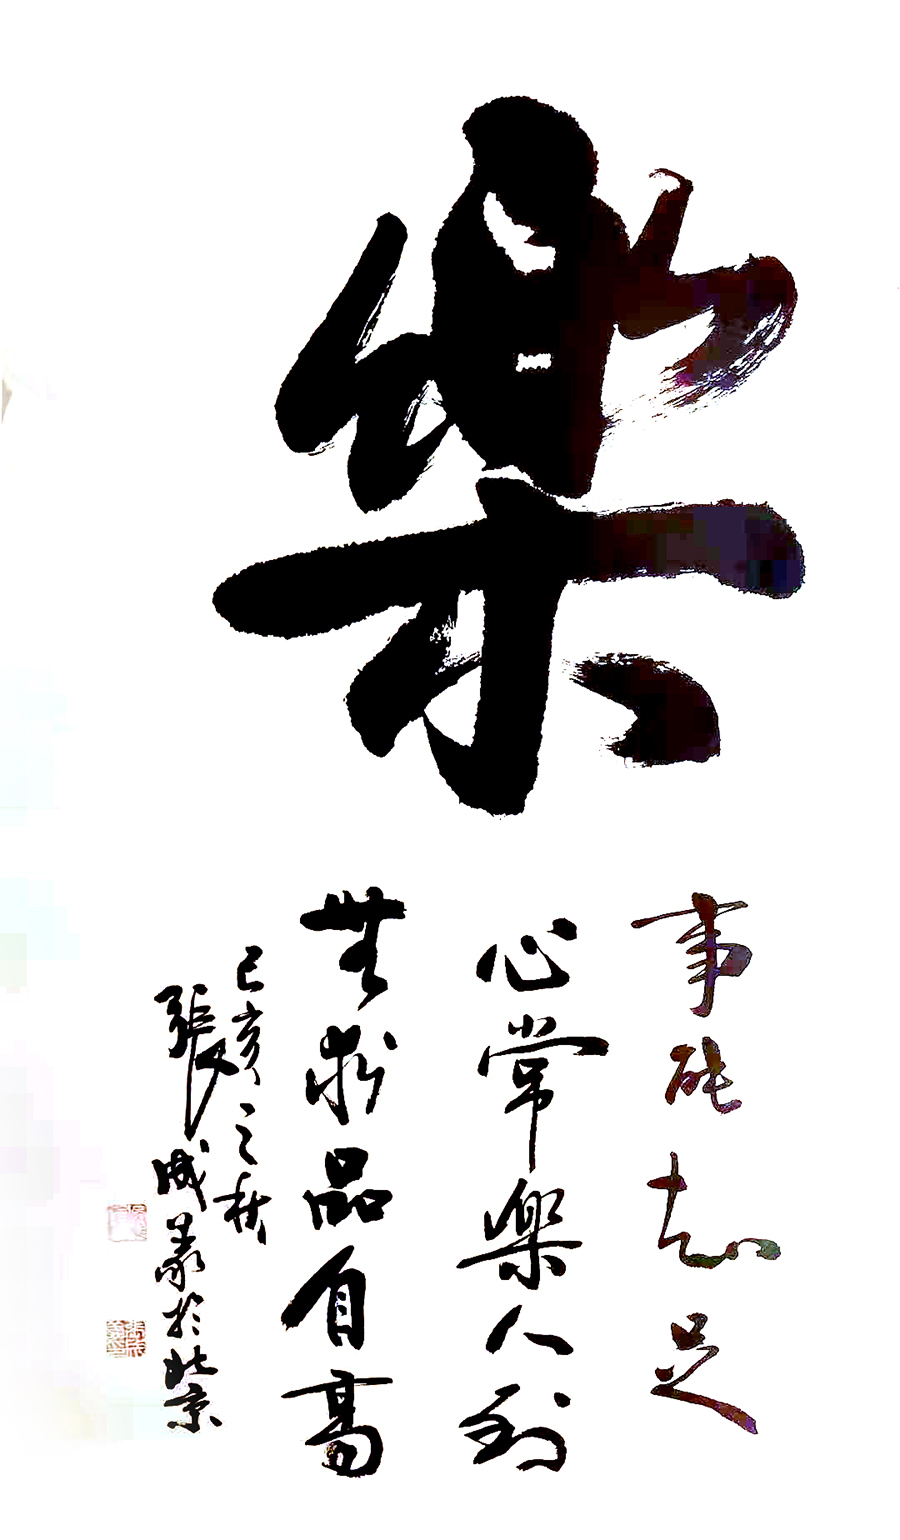 樂
事能知足
心常樂人到
無求品自高
己亥之秋
張成於北京